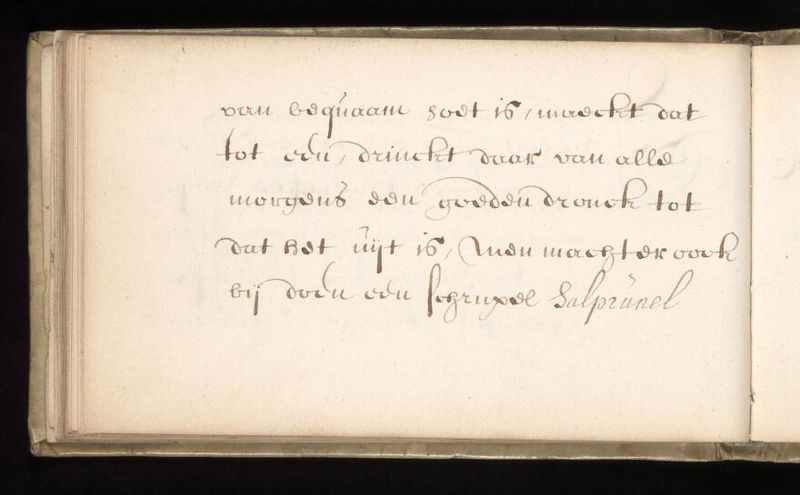 van bequaam zoet is, maeckt dat
tot een, drinckt daar van alle
morgens een goeden dronck tot
dat het uijt is, Men mach ter oock
bij doen een schrupel Salprunel